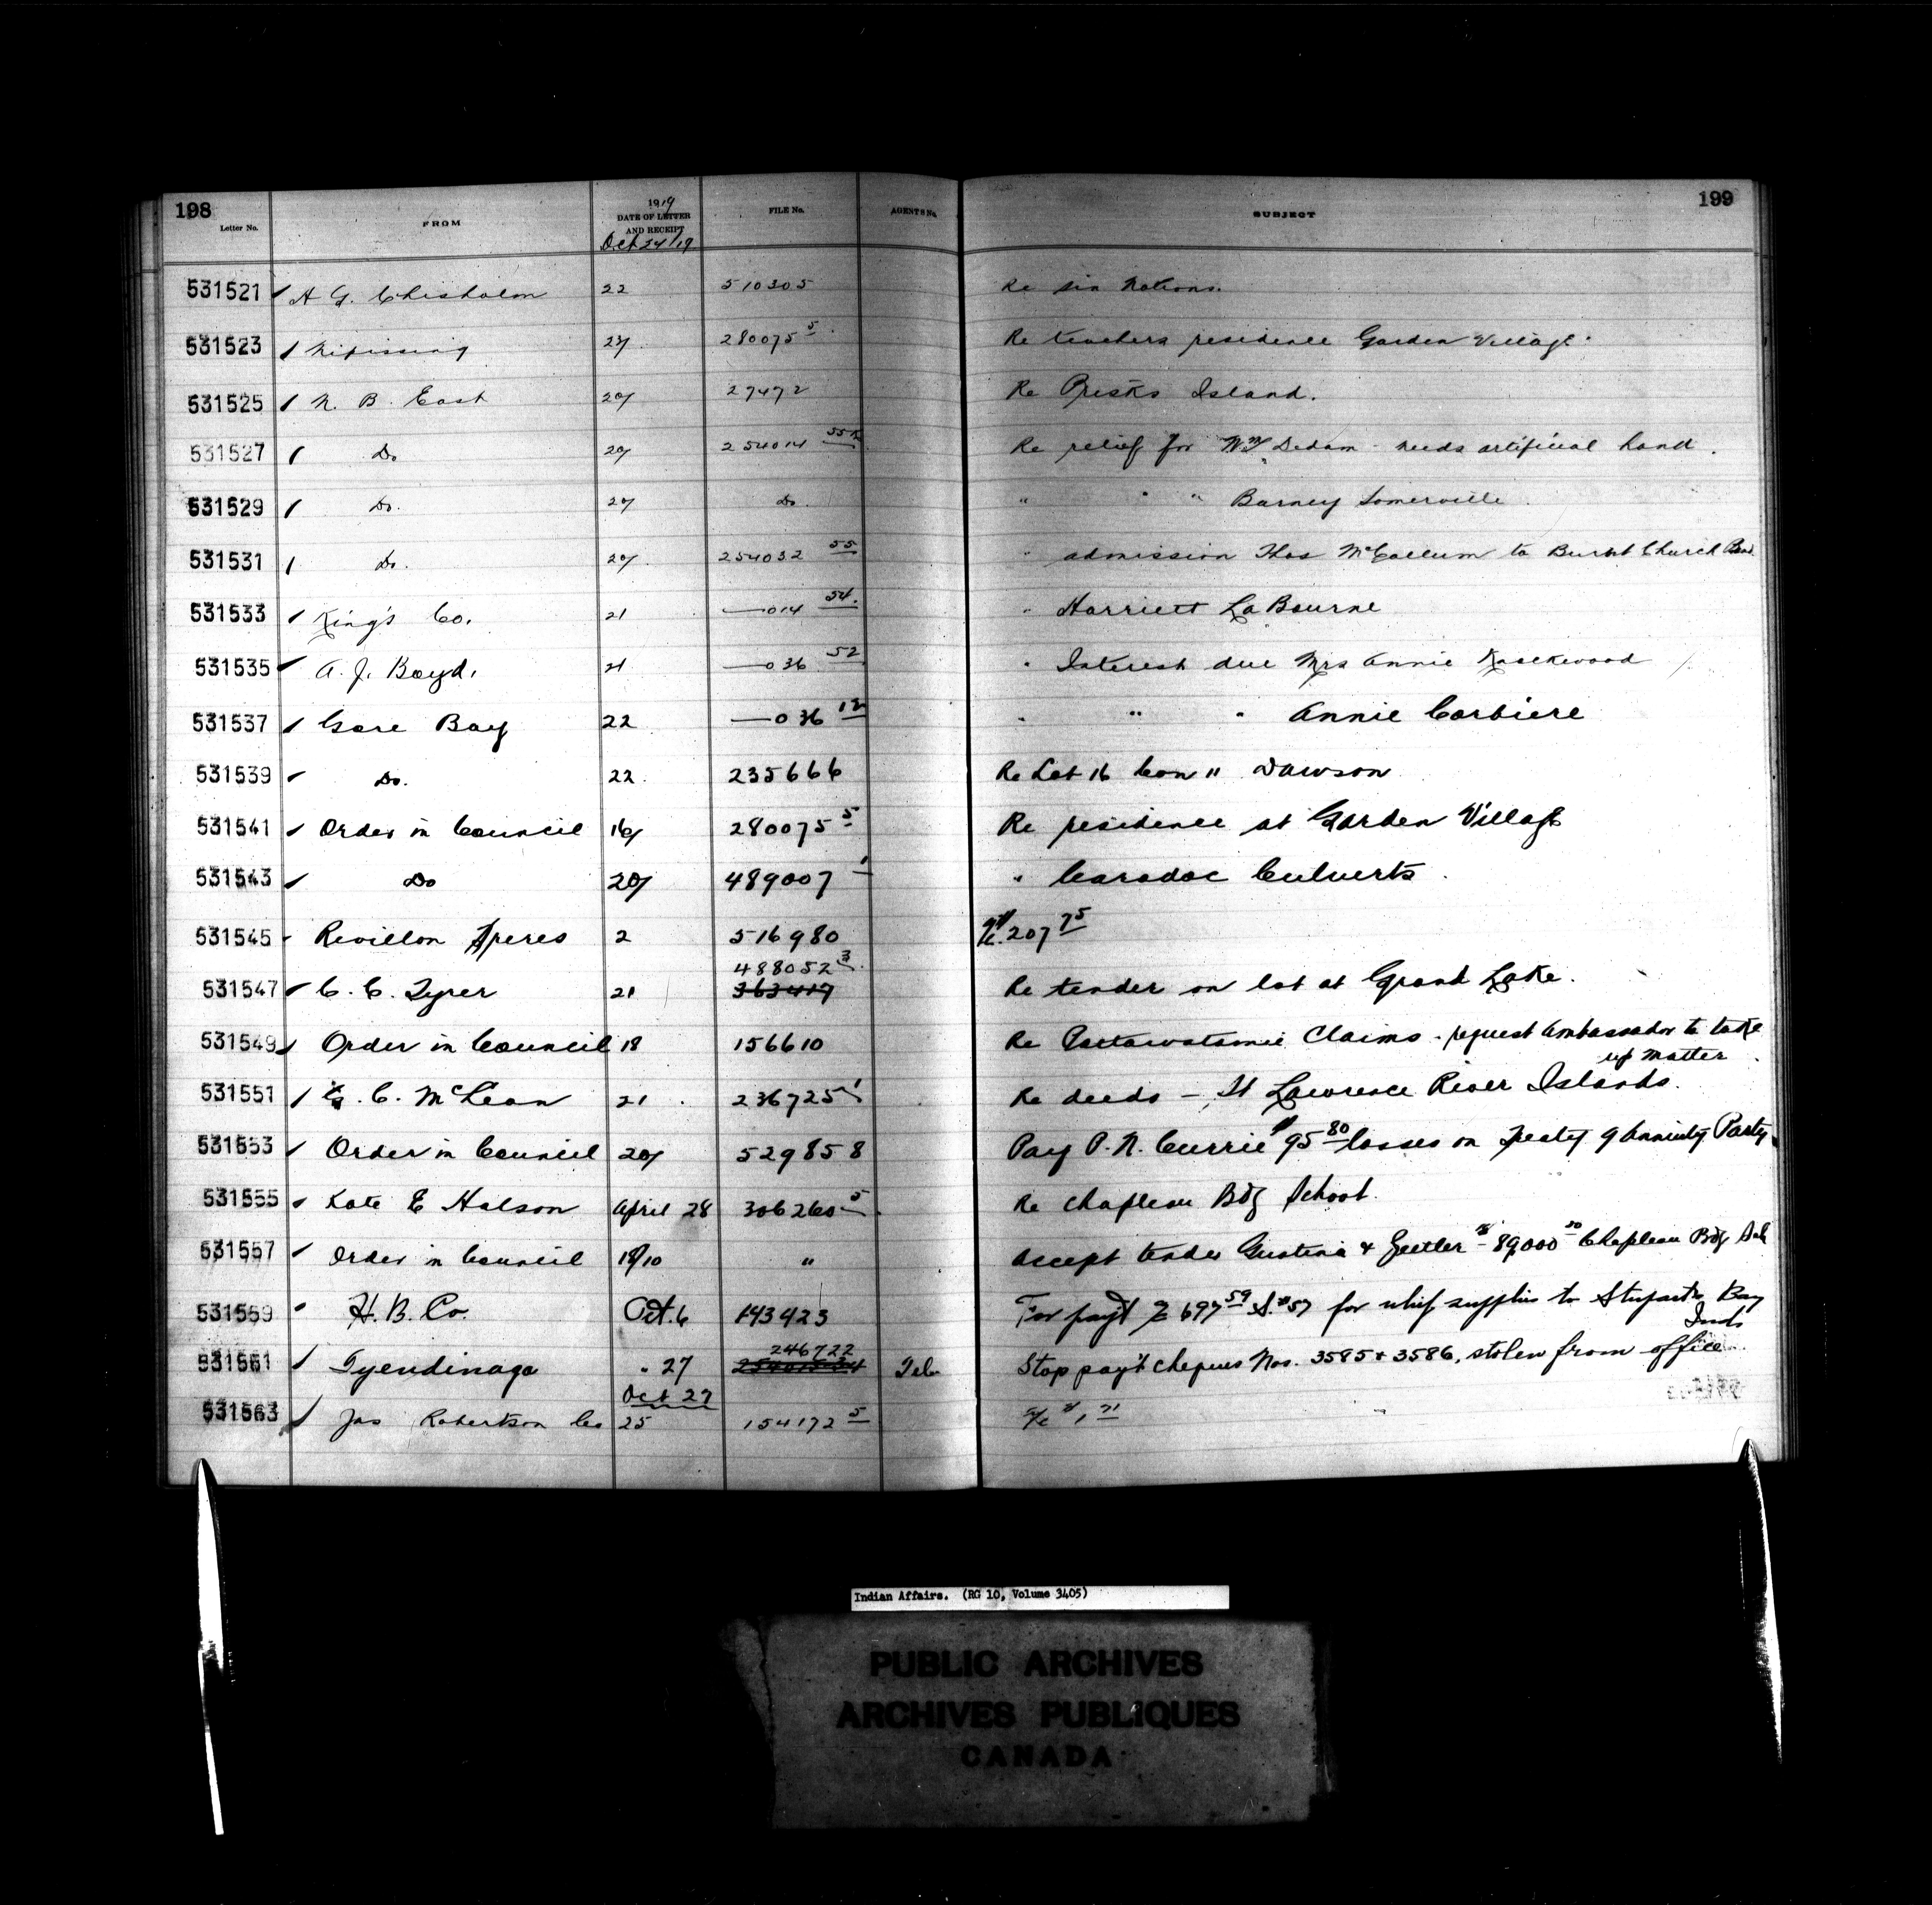 198
199
Letter No. FROM 1919 DATE OF LETTER AND RECEIPT FILE No. AGENTS No. SUBJECT
Oct 24/19
531521 A G. Chisholm 22 510305 Re Six Nations.
531523 Nipissing 23/ 280075 5 Re teachers residence Garden Village
531525 N. B. East 20/ 27472 Re Island.
531527 Do 20/ 254014 55 Re relief for Wm Dedam - needs artificial hand.
531529 Do. 20/ Do. " " " Barney Somerville
531531 Do. 20/ 254032 55 " admission Thos McCallum to Burnt Church Band
531533 King's Co. 21 —014 54. " Harriett LaBourne
531535 A. J. Boyd. 21 —036 52 " Interest due Mrs Annie
531537 Gore Bay 22 —036 12 " " " Annie Corbiere
531539 Do. 22 235666 Re Lot 16 Con 11 Dawson
531541 Order in Council 16/ 280075 5 Re residence at Garden Village
531543 Do 20/ 489007 1 " Caradoc Culverts
531545 Revillon Freres 2 516980 a/c. 207 75
488052 3
531547 C. C. Tyrer 21 363419 Re tender on lot at Grand Lake.
531549 Order in Council 18 156610 Re Pottawatomie Claims - request Ambassador to take
up matter
531551 G. C. McLean 21 236725 1 Re deeds - St Lawrence River Islands.
531553 Order in Council 20/ 529858 Pay P. N. Currie $95 80 losses on Treaty 9 Annuity Party
531555 Kate E Halson April 28 306260 5 Re Chapleau Bdg School.
531557 Order in Council 18/10 " Accept tender & - 89,000 Chapleau Bdg Sch
531559 H. B. Co. Oct. 6 143423 For payt 697 59 for relief supplies to Stuparts Bay
Inds
246722
531561 Tyendinaga " 27 Tel. Stop pay't cheques Nos. 3585 & 3586, stolen from office
Oct 27
531563 Jas Robertson Co 25 154172 5 a/c
Indian Affairs. (RG 10, Volume 3405)
PUBLIC ARCHIVES
ARCHIVES PUBLIQUES
CANADA